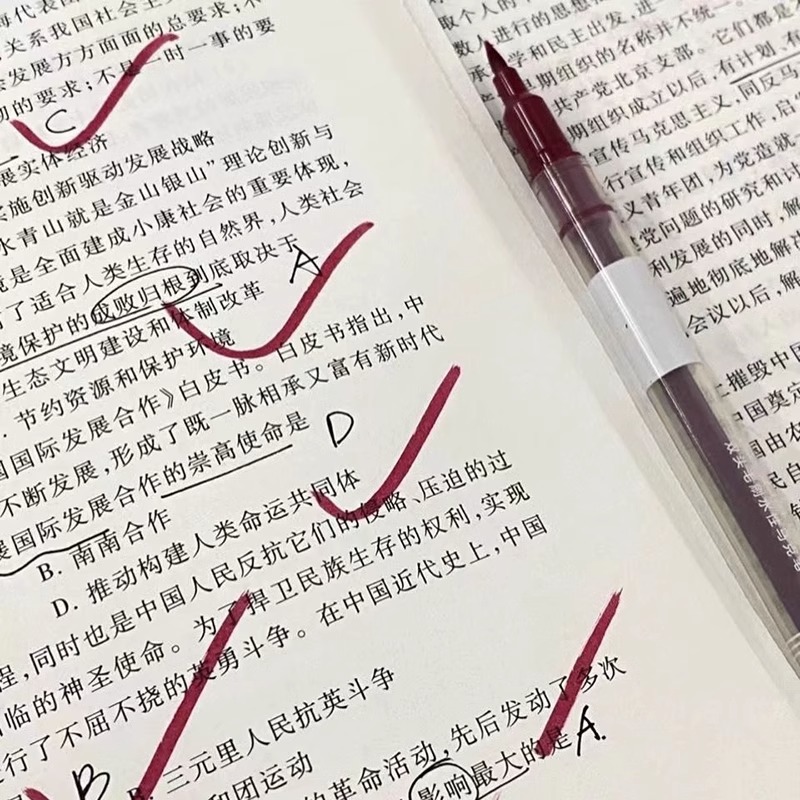 海代表国
关系我国社会主
会发展方方面面的总要求;不
的要求;不是一时一事的要
C
展实体经济
实施创新驱动发展战略
水青山就是金山银山”理论创新与
是全面建成小康社会的重要体现,
了适合人类生存的自然界,人类社会
境保护的成败归根到底取决于
A
生态文明建设和体制改革
节约资源和保护环境
国际发展合作》白皮书。白皮书指出,中
不断发展,形成了既一脉相承又富有新时代
展国际发展合作的崇高使命是
D
B. 南南合作
D. 推动构建人类命运共同体
程,同时也是中国人民反抗它们的侵略、压迫的过
临的神圣使命。为了捍卫民族生存的权利,实现
行了不屈不挠的英勇斗争。在中国近代史上,中国
B
B. 三元里人民抗英斗争
和团运动
的革命活动,先后发动了多次
影响最大的是
A.
取个人的
数人进行的思想
学和民主出发,进
期组织的名称并不统一。它们都是
共产党北京支部。
期组织成立以后,有计划、有
宣传马克思主义,同反马
行宣传和组织工作,启
义青年团,为党造就一
党问题的研究和讨
利发展的同时,解
遍地彻底地解决
会议以后,解
上摧毁中国
中国奠定
国由农
民自